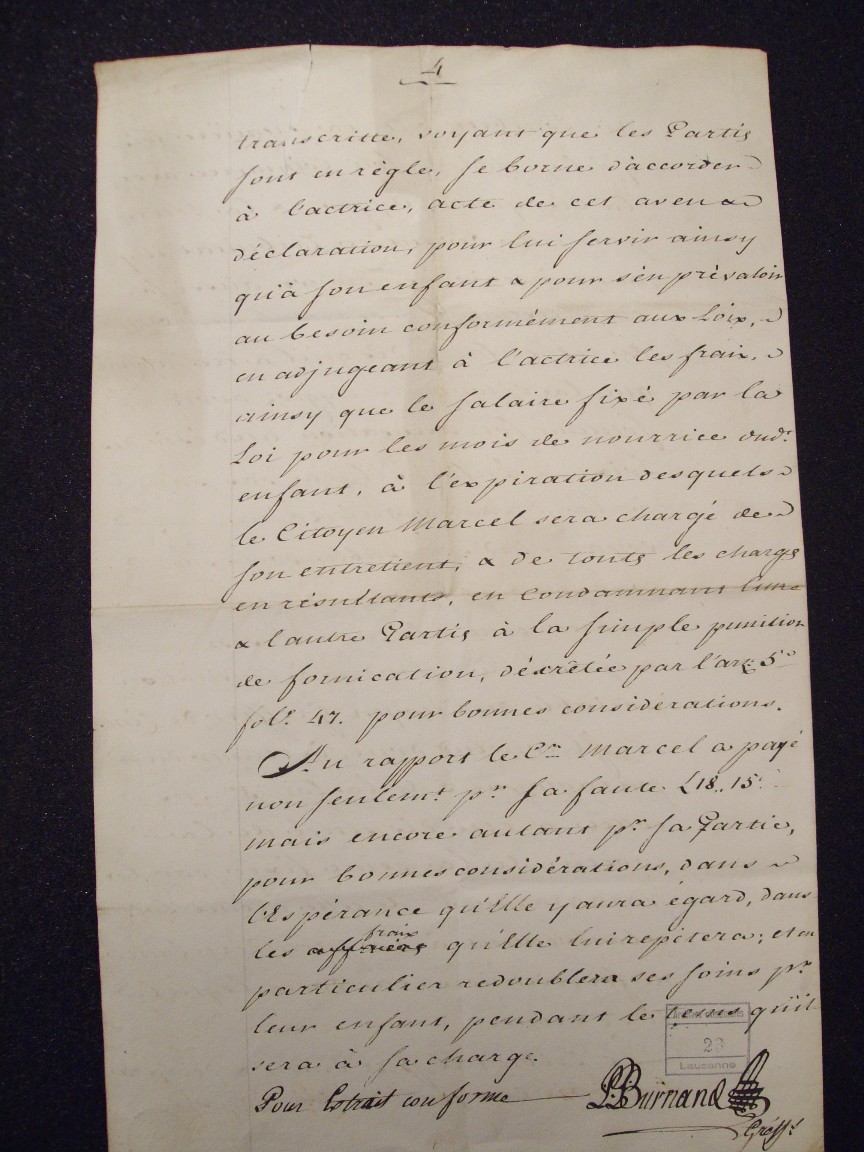 4
transcritte, voyant que les Partis
sont en règle, se borne d'accorder
à l'actrice, acte de cet aveu &
déclaration, pour lui servir ainsy
qu'à son enfant & pour s'en prévaloir
au besoin conformément aux Loix,
en adjugeant à l'actrice les frais,
ainsy que le salaire fixé par la
Loi pour les mois de nourrice dud.t
enfant, à l'expiration desquels
le Citoyen Marcel sera chargé de
son entretient, & de touts les charges
en résultants, en Condamnant l'une
& l'autre Partis à la simple punition
de fornication, déxrêtée par l'art 5e
fol.o 47. pour bonnes considérations.
Au rapport le C.en Marcel a payé
non seulem.t p.r sa faute L 18.. 15
mais encore autant p.r sa Partie,
pour bonnes considérations, dans
l'Espérance qu'Elle y aura égard, dans
frais
les qu'Elle lui repétera; et en
particulier redoublera ses soins p.r
leur enfant, pendant le tems qu'il
sera à sa charge.
Pour Extrait conforme P. Burnand
Greff.r
23
Lausanne